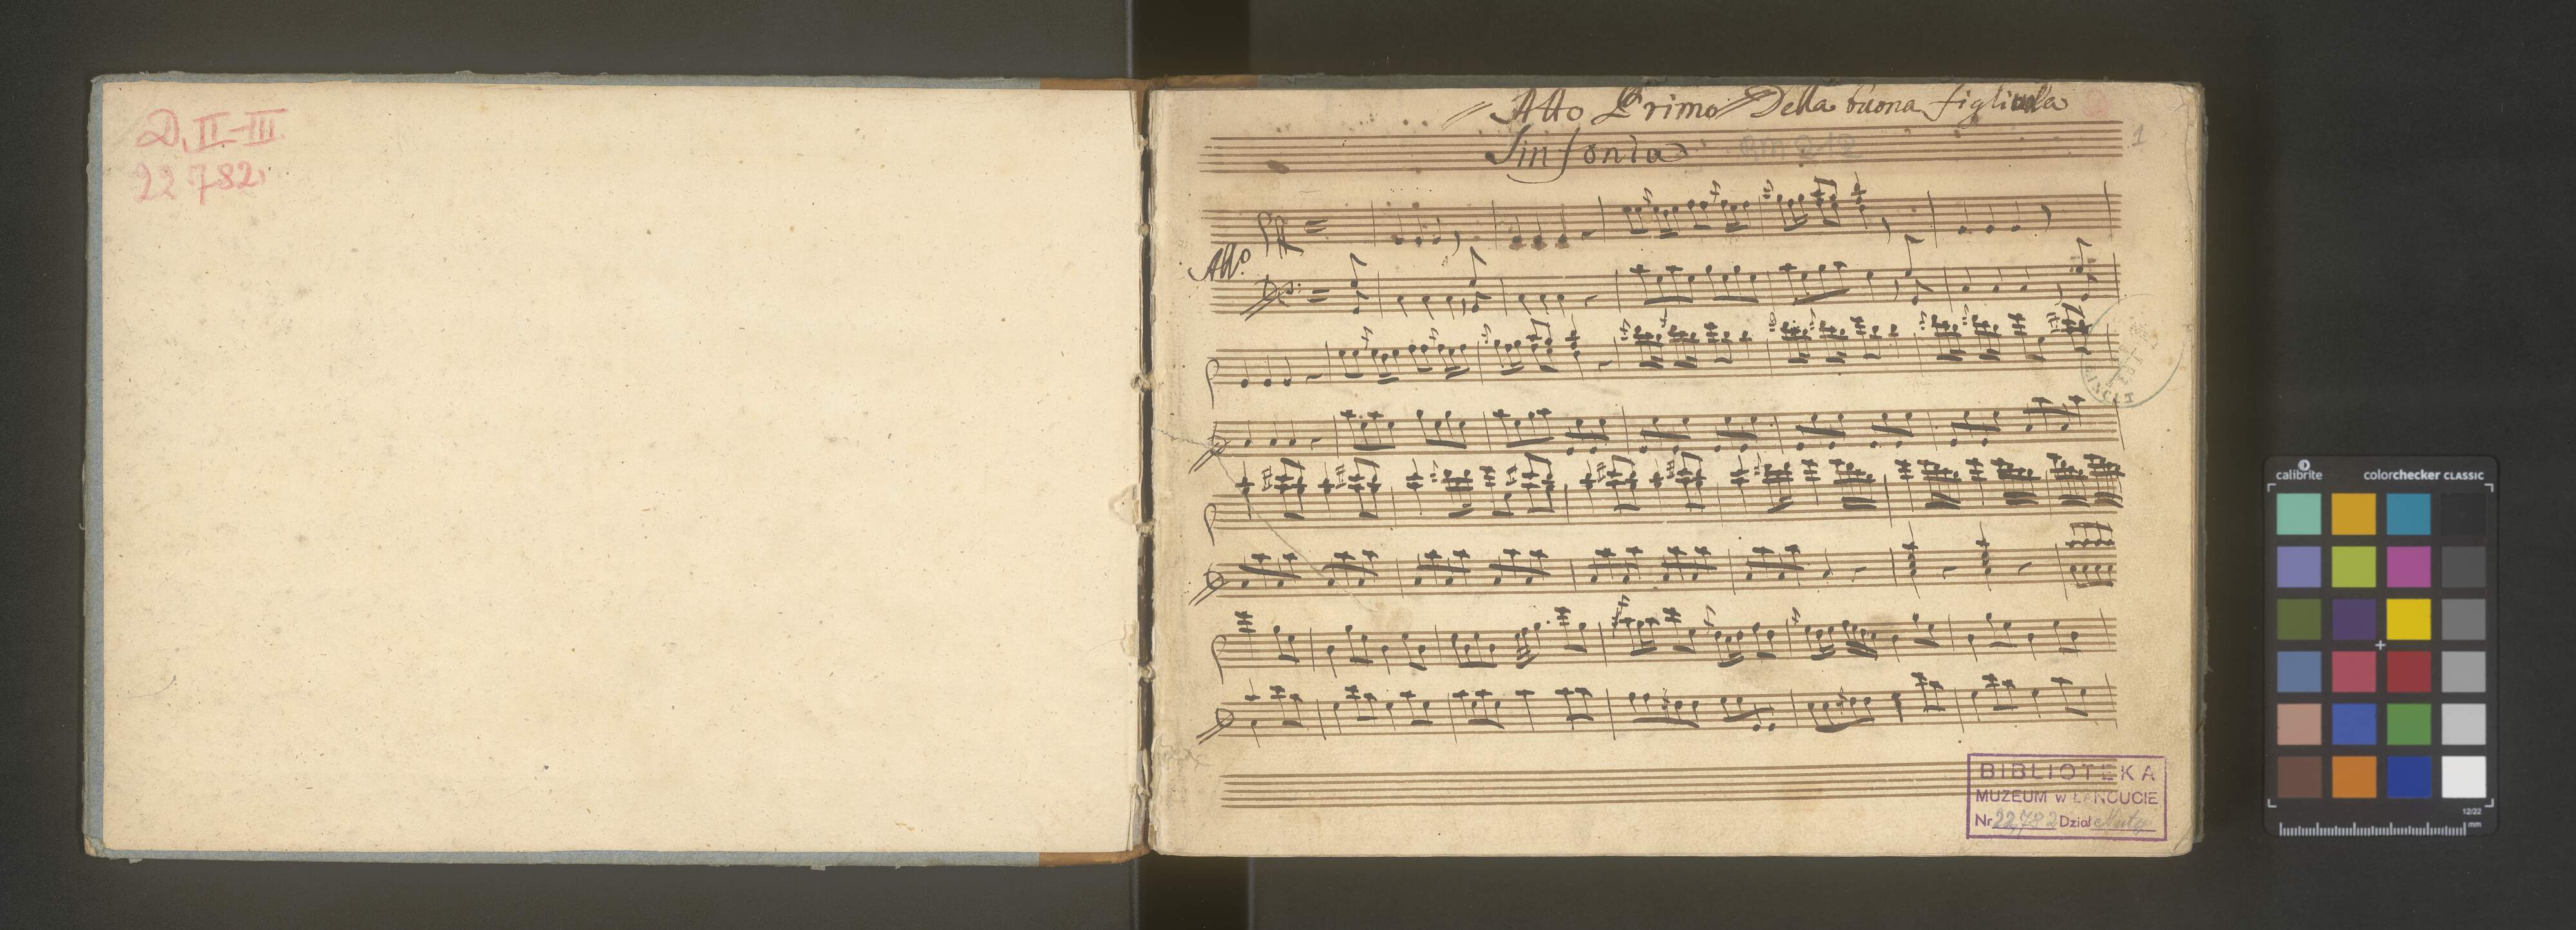 D. II-III
22 782
Atto Primo Della buona figliuola
1
Sinfonia
All.o
BIBLIOTEKA
MUZEUM w ŁAŃCUCIE
Nr 22,782 Dział Nuty
calibrite colorchecker CLASSIC
12/22
mm